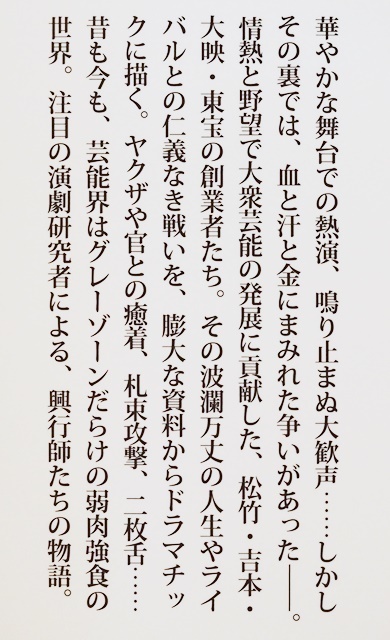 華やかな舞台での熱演、鳴り止まぬ大歓声……しかし
その裏では、血と汗と金にまみれた争いがあった――。
情熱と野望で大衆芸能の発展に貢献した、松竹・吉本・
大映・東宝の創業者たち。その波瀾万丈の人生やライ
バルとの仁義なき戦いを、膨大な資料からドラマチッ
クに描く。ヤクザや官との癒着、札束攻撃、二枚舌……
昔も今も、芸能界はグレーゾーンだらけの弱肉強食の
世界。注目の演劇研究者による、興行師たちの物語。